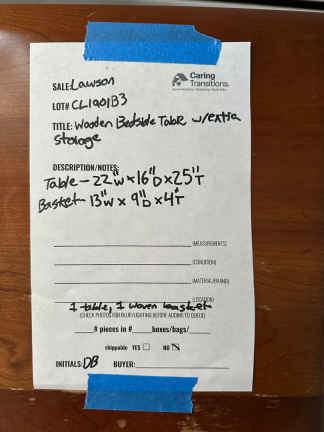 Caring
Transitions.
SALE: Lawson
LOT# CL1901B3
TITLE: Wooden Bedside Table w/extra
Storage
DESCRIPTION/NOTES:
Table - 22"W x 16"D x 25"T
Basket - 13"W x 9"D x 4"T
(MEASUREMENTS)
(CONDITION)
(MATERIAL/BRAND)
(LOCATION)
1 table, 1 woven basket
(CHECK PHOTOS FOR BLUR/LIGHTING BEFORE ADDING TO QUEUE)
# pieces in # boxes/bags/
shippable YES NO
INITIALS: DB BUYER: